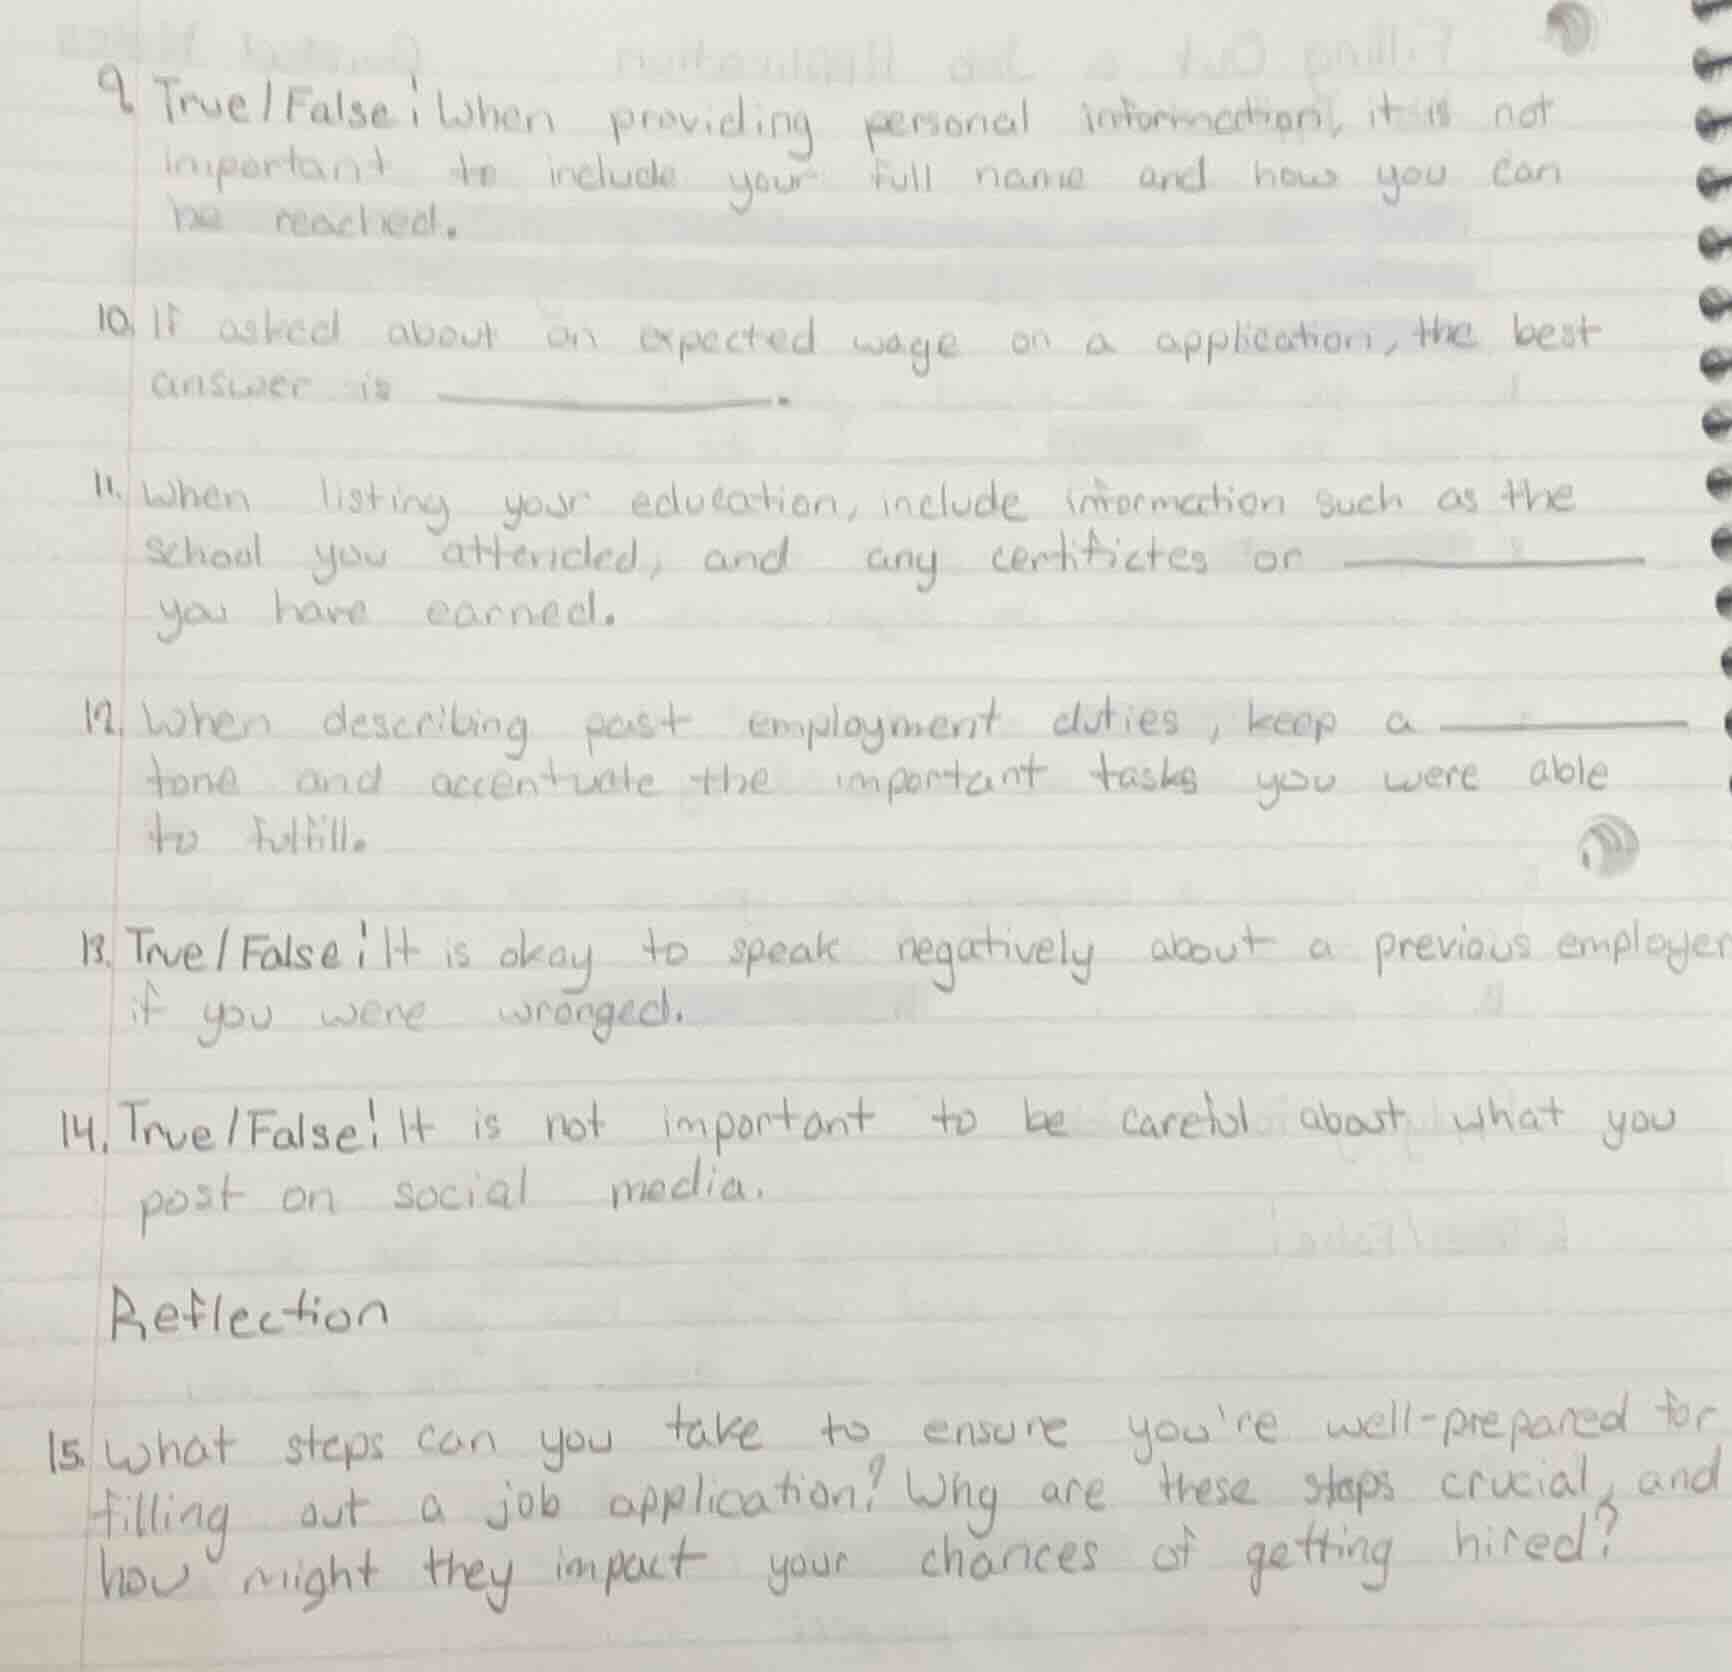 9. True/False: When providing personal information, it is not
important to include your full name and how you can
be reached.
10. If asked about an expected wage on a application, the best
answer is ________.
11. When listing your education, include information such as the
school you attended, and any certifictes or ________
you have earned.
12. When describing past employment duties, keep a ________
tone and accentuate the important tasks you were able
to fulfill.
13. True/False: It is okay to speak negatively about a previous employer
if you were wronged.
14. True/False: It is not important to be careful about what you
post on social media.
Reflection
15. What steps can you take to ensure you're well-prepared for
filling out a job application? Why are these steps crucial, and
how might they impact your chances of getting hired?